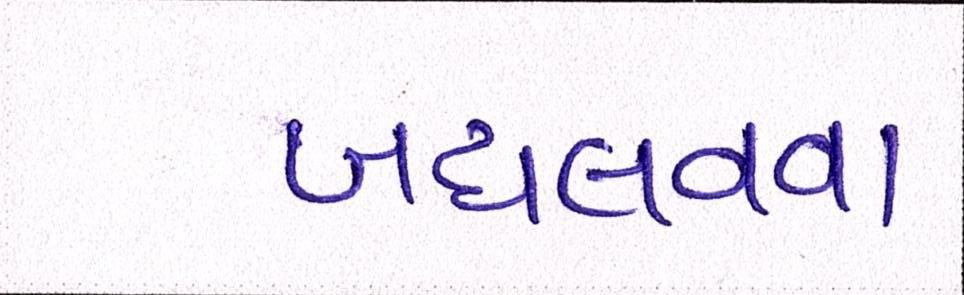 બદાલવવા